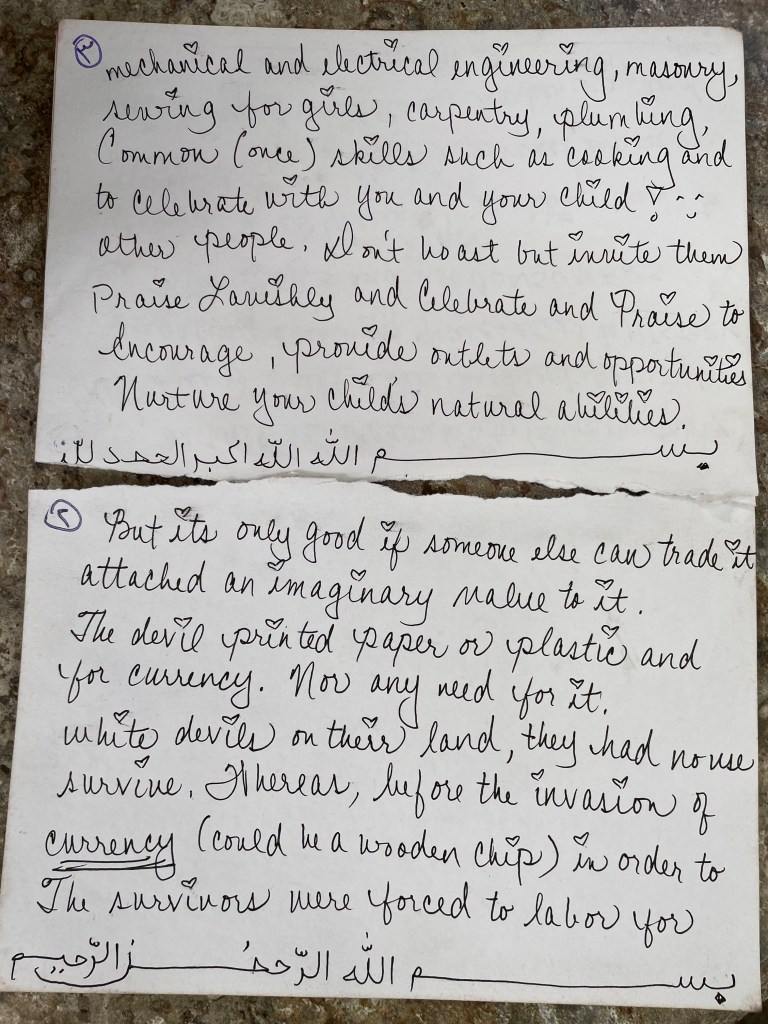 ٣ mechanical and electrical engineering, masonry,
sewing for girls, carpentry, plumbing,
Common (once) skills such as cooking and
to celebrate with you and your child
other people. Don't boast but invite them
Praise Lavishly and Celebrate and Praise to
Encourage, provide outlets and opportunities
Nurture your child's natural abilities.
بســـــم اللّه اللّه اكبر الحمد للّه
٢ But its only good if someone else can trade it
attached an imaginary value to it.
The devil printed paper or plastic and
for currency. Nor any need for it.
white devils on their land, they had no use
survive. Whereas, before the invasion of
currency (could be a wooden chip) in order to
The survivors were forced to labor for
بســـــم اللّه الرّحمـــن الرّحيم